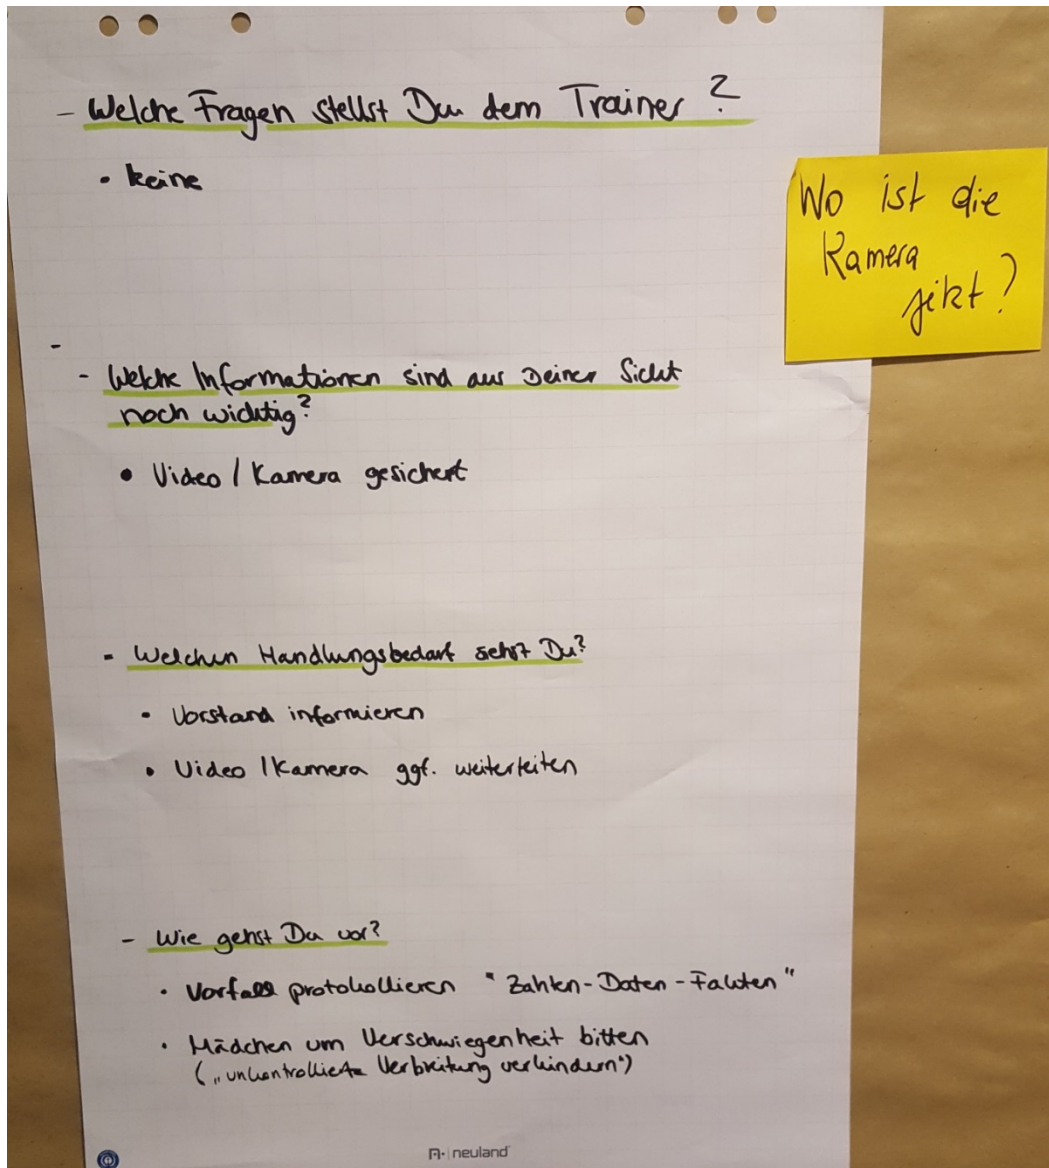 - Welche Fragen stellst Du dem Trainer?
• keine
Wo ist die
Kamera
jetzt?
-
- Welche Informationen sind aus Deiner Sicht
noch wichtig?
• Video / Kamera gesichert
- Welchen Handlungsbedarf siehst Du?
• Vorstand informieren
• Video / Kamera ggf. weiterleiten
- Wie gehst Du vor?
• Vorfall protokollieren "Zahlen-Daten-Fakten"
• Mädchen um Verschwiegenheit bitten
("unkontrollierte Verbreitung verhindern")
neuland